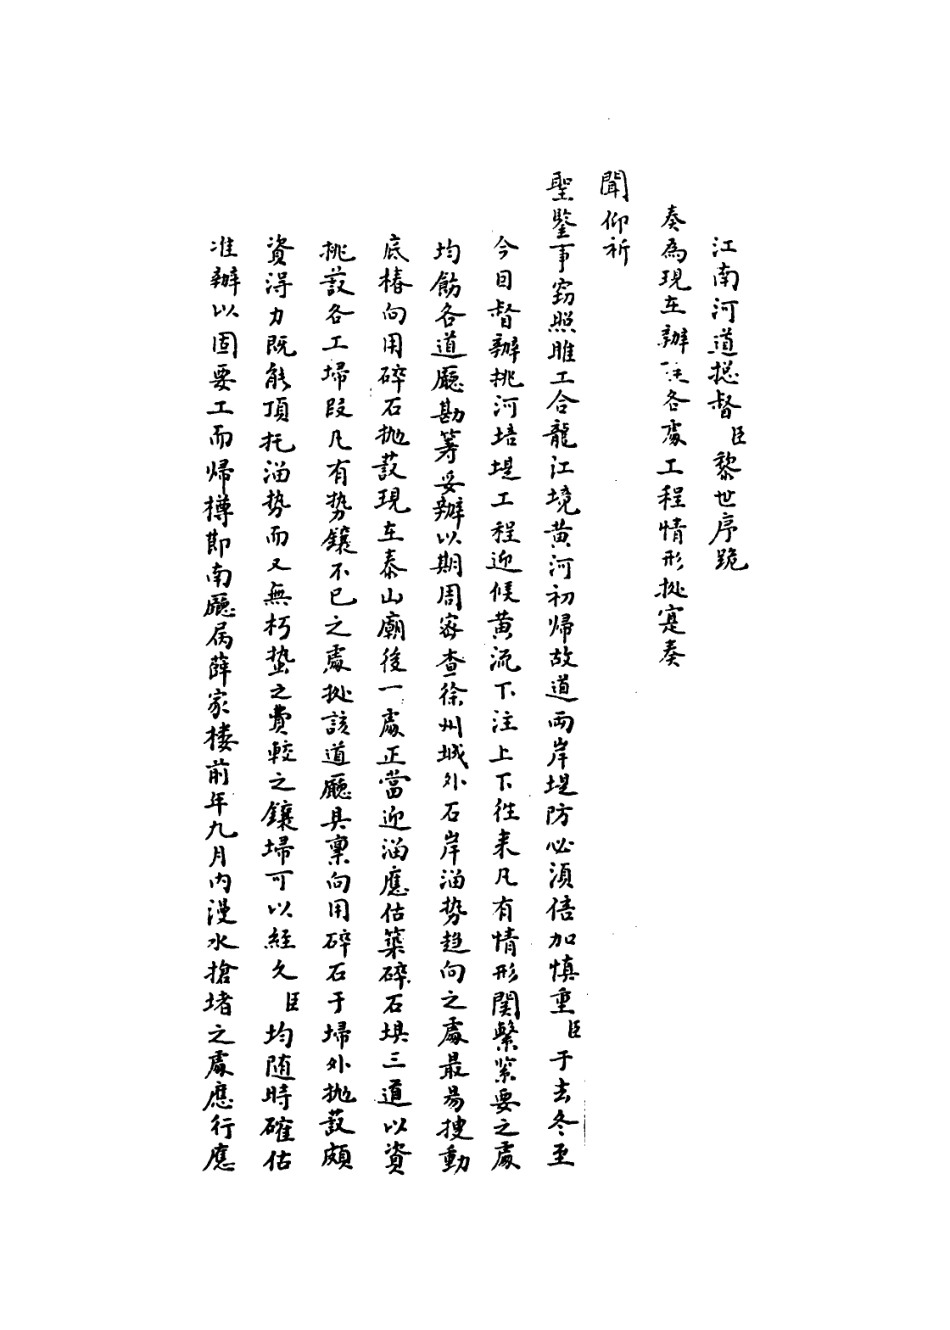 江南河道捴督臣黎世序跪
奏為現在辦各處工程情形摐寔奏
聞仰祈
聖鑒事窃照睢工合龍江境黄河初歸故道兩岸堤防必須倍加慎重臣于去冬至
今日督辦挑河培堤工程迎候黄流下注上下徃来凡有情形関繫紧要之處
均飭各道廰勘筹妥辦以期周宻查徐州城外石岸溜勢趋向之處最易搜動
底樁向用碎石抛䕶現在泰山廟後一處正當迎溜應估築碎石垻三道以資
挑䕶各工埽段凡有势鑲不已之處摐該道廰具禀向用碎石于埽外抛䕶頗
資淂力既能頂托溜势而又無朽蛰之費較之鑲埽可以経久臣均随時確估
准辦以固要工而帰樽節南廰属薛家楼前年九月内漫水搶堵之處應行應